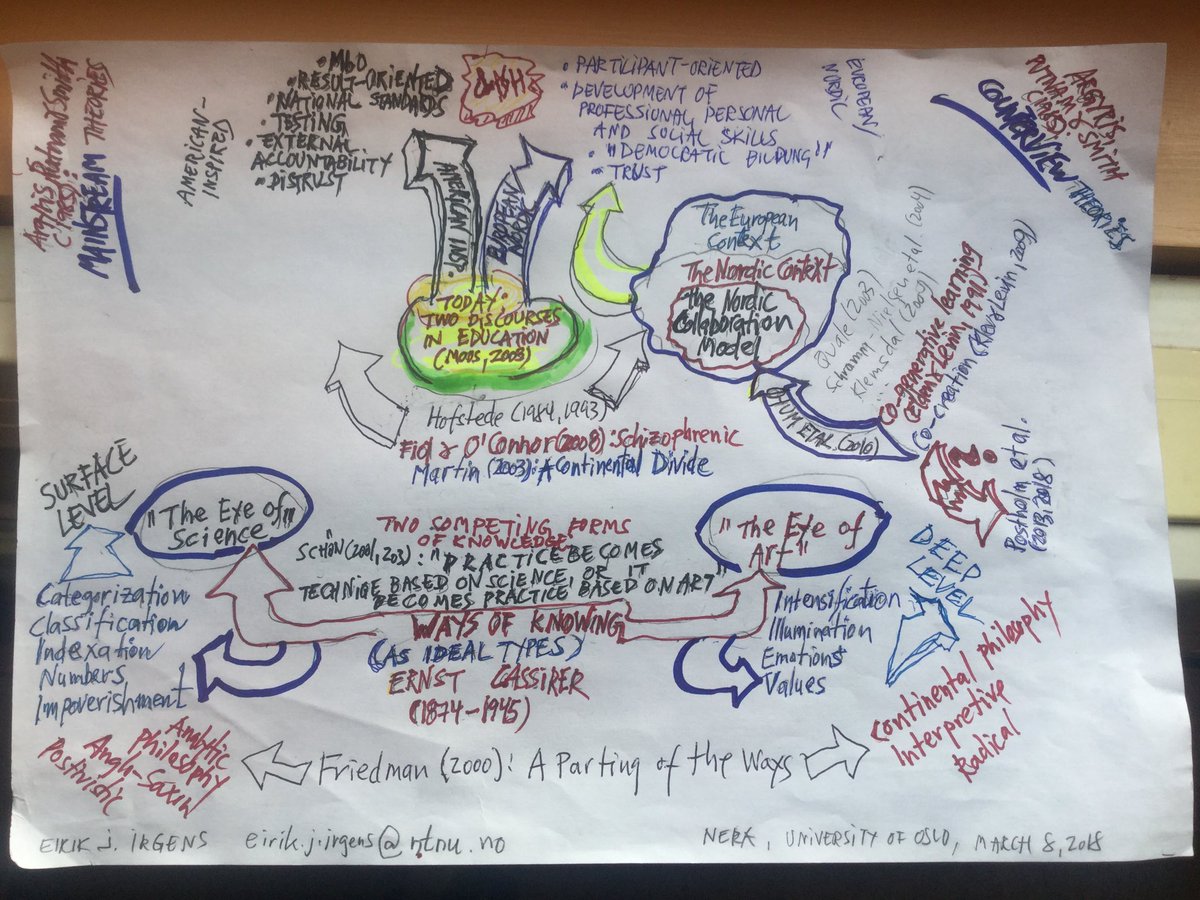 Argyris Putnam & Smith
(1985):
MAINSTREAM THEORIES
AMERICAN-
INSPIRED
• MbO
• RESULT-ORIENTED
• NATIONAL STANDARDS
• TESTING
• EXTERNAL
ACCOUNTABILITY
• DISTRUST
• PARTILIPANT-ORIENTED
• DEVELOPMENT OF
PROFESSIONAL PERSONAL
AND SOCIAL SKILLS
• "DEMOCRATIC BILDUNG"
• TRUST
EUROPEAN/
NORDIC
ARGYRIS
PUTNAM & SMITH
(1985)
COUNTERVIEW THEORIES
AMERICAN INSP.
EUROPEAN
NORDIC
TODAY:
TWO DISCOURSES
IN EDUCATION
(MOOS, 2003)
The European
Context
The Nordic Context
the Nordic
Collaboration
Model
Qvale (2003)
Schramm-Nielsen et al (2004)
Klemsdal (2009)
Co-generative learning
(Elden & Levin, 1991)
Co-creation (Klev & Levin, 2009)
ET AL. (2010)
Postholm et al.
(2013, 2018)
Hofstede (1984, 1993)
Fiol & O'Connor (2008): Schizophrenic
Martin (2003): A Continental Divide
SURFACE
LEVEL
"The Eye of"
Science
TWO COMPETING FORMS
OF KNOWLEDGE
SCHÖN (2001, 203): "PRACTICE BECOMES
TECHNIQE BASED ON SCIENCE, OR IT
BECOMES PRACTICE BASED ON ART"
"The Eye of
Art"
DEEP
LEVEL
Categorization
Classification
Indexation
Numbers
Impoverishment
WAYS OF KNOWING
(AS IDEAL TYPES)
ERNST CASSIRER
(1874-1945)
Intensification
Illumination
Emotions
Values
Analytic
philosophy
Anglo-Saxon
Positivistic
Friedman (2000): A Parting of the Ways
Continental philosophy
Interpretive
Radical
EIRIK J. IRGENS eirik.j.irgens@ntnu.no
NERA, UNIVERSITY OF OSLO, MARCH 8, 2018